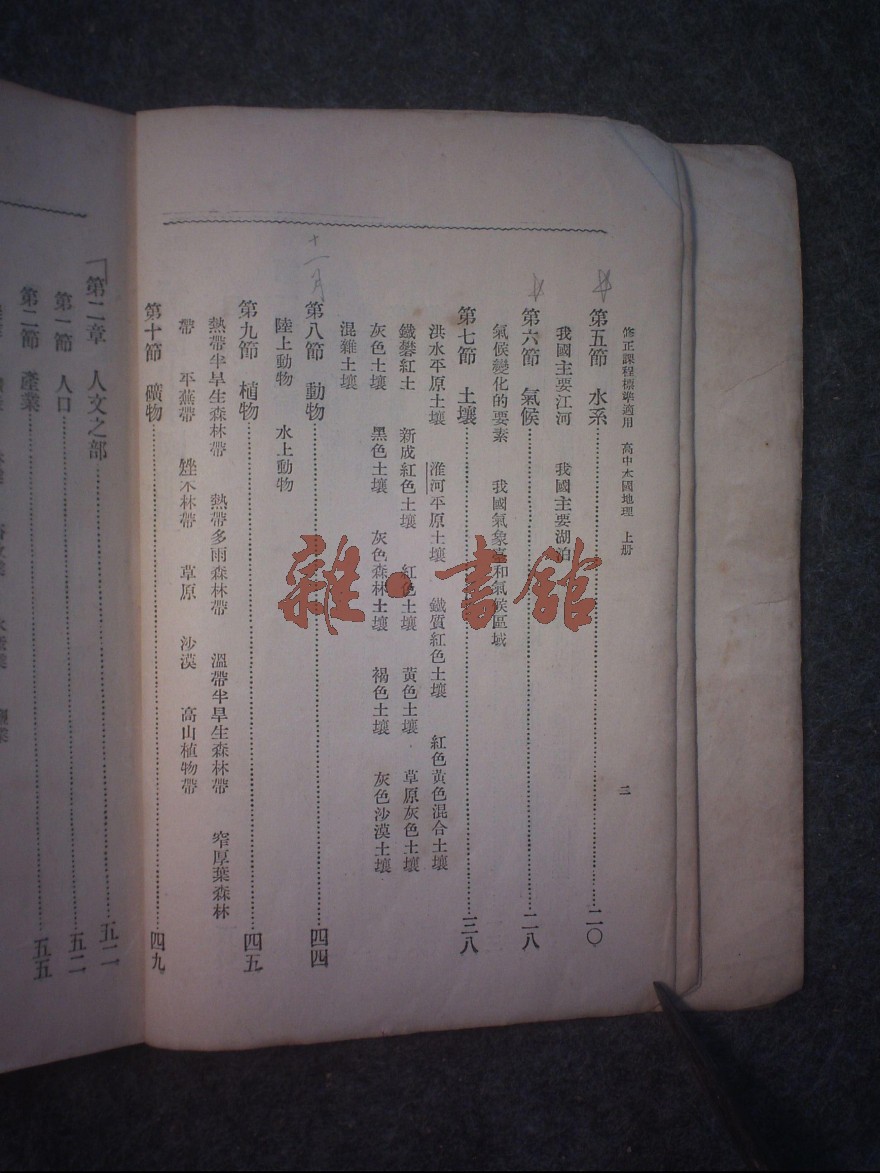 修正課程標準適用 高中本國地理 上册 二
第五節 水系……二〇
我國主要江河 我國主要湖泊
第六節 氣候……二八
氣候變化的要素 我國氣象臺和氣候區域
第七節 土壤……三八
洪水平原土壤 淮河平原土壤 鐵質紅色土壤 紅色黃色混合土壤
鐵礬紅土 新成紅色土壤 紅色土壤 黃色土壤 草原灰色土壤
灰色土壤 黑色土壤 灰色森林土壤 褐色土壤 灰色沙漠土壤
混雜土壤
十一月
第八節 動物……四四
陸上動物 水上動物
第九節 植物……四五
熱帶半旱生森林帶 熱帶多雨森林帶 溫帶半旱生森林帶 窄厚葉森林
帶 平蕪帶 矮木林帶 草原 沙漠 高山植物帶
第十節 礦物……四九
第二章 人文之部……五二
第一節 人口……五二
第二節 產業……五五
雜·書館